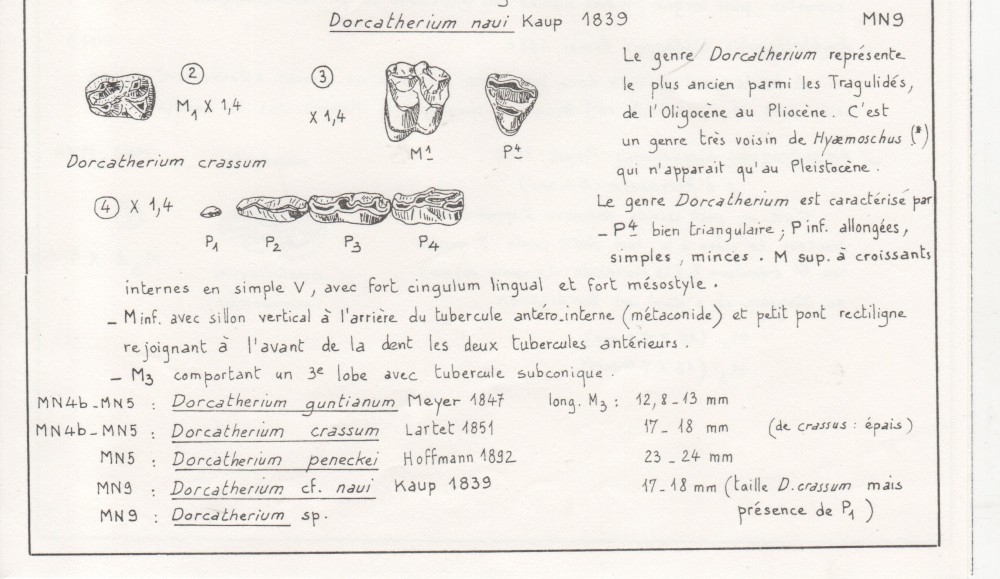 Dorcatherium naui Kaup 1839 MN9
Le genre Dorcatherium représente
le plus ancien parmi les Tragulidés,
de l'Oligocène au Pliocène. C'est
un genre très voisin de Hyæmoschus (*)
qui n'apparait qu'au Pleistocène.
② M₁ X 1,4
③ X 1,4
M¹ P⁴
Dorcatherium crassum
④ X 1,4
P₁ P₂ P₃ P₄
Le genre Dorcatherium est caractérisé par
_ P⁴ bien triangulaire ; P inf. allongées,
simples, minces. M sup. à croissants
internes en simple V, avec fort cingulum lingual et fort mésostyle.
_ M inf. avec sillon vertical à l'arrière du tubercule antéro-interne (métaconide) et petit pont rectiligne
rejoignant à l'avant de la dent les deux tubercules antérieurs.
_ M₃ comportant un 3e lobe avec tubercule subconique.
MN4b-MN5 : Dorcatherium guntianum Meyer 1847 long. M₃ : 12,8-13 mm
MN4b-MN5 : Dorcatherium crassum Lartet 1851 17-18 mm (de crassus : épais)
MN5 : Dorcatherium peneckei Hoffmann 1892 23-24 mm
MN9 : Dorcatherium cf. naui Kaup 1839 17-18 mm (taille D.crassum mais
présence de P₁)
MN9 : Dorcatherium sp.